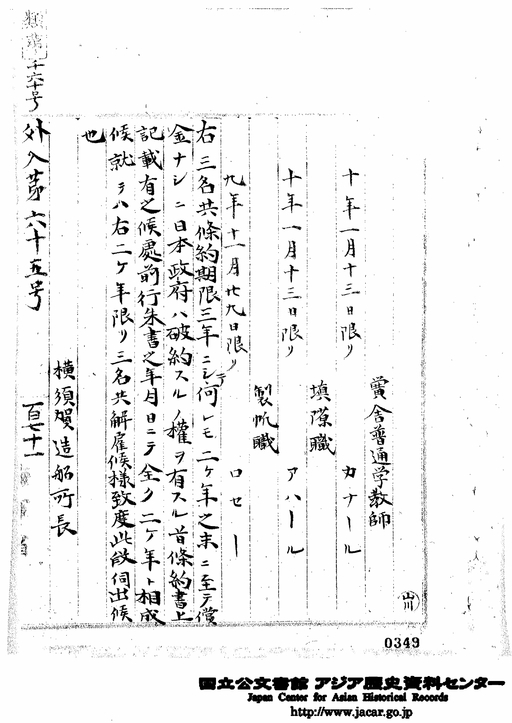 黌舎普通学教師
十年一月十三日限リ カナール
填隙職
十年一月十三日限リ アハール
製帆職
九年十一月廿九日限リ ロセー
右三名共條約期限三年ニシテ何レモ二ケ年之末ニ至テ償
金ナシニ日本政府ハ破約スルノ權ヲ有スル旨條約書上
記載有之候處前行朱書之年月日ニテ全ク二ケ年ト相成
候就テハ右二ケ年限リ三名共解雇候様致度此段伺出候
也
横須賀造船所長
外入第六十五号
百七十一
千六十号
山川
0349
国立公文書館 アジア歴史資料センター
Japan Center for Asian Historical Records
http://www.jacar.go.jp